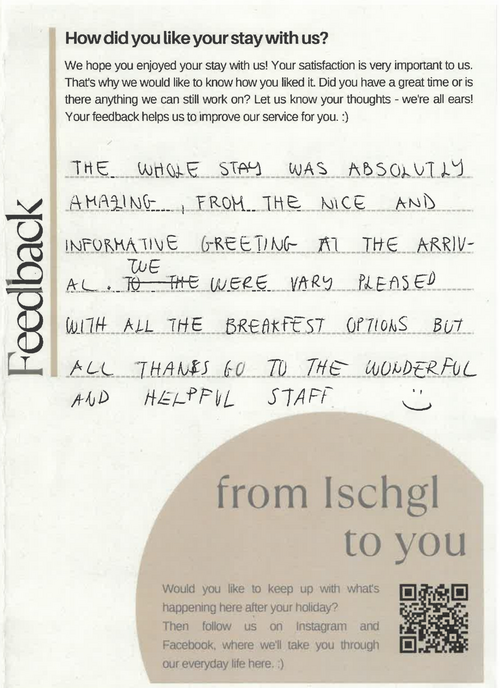 How did you like your stay with us?
We hope you enjoyed your stay with us! Your satisfaction is very important to us.
That's why we would like to know how you liked it. Did you have a great time or is
there anything we can still work on? Let us know your thoughts - we're all ears!
Your feedback helps us to improve our service for you. :)
Feedback
THE WHOLE STAY WAS ABSOLUTLY
AMAZING , FROM THE NICE AND
INFORMATIVE GREETING AT THE ARRIV-
WE
AL . TO THE WERE VARY PLEASED
WITH ALL THE BREAKFEST OPTIONS BUT
ALL THANKS GO TO THE WONDERFUL
AND HELPFUL STAFF :)
from Ischgl
to you
Would you like to keep up with what's
happening here after your holiday?
Then follow us on Instagram and
Facebook, where we'll take you through
our everyday life here. :)